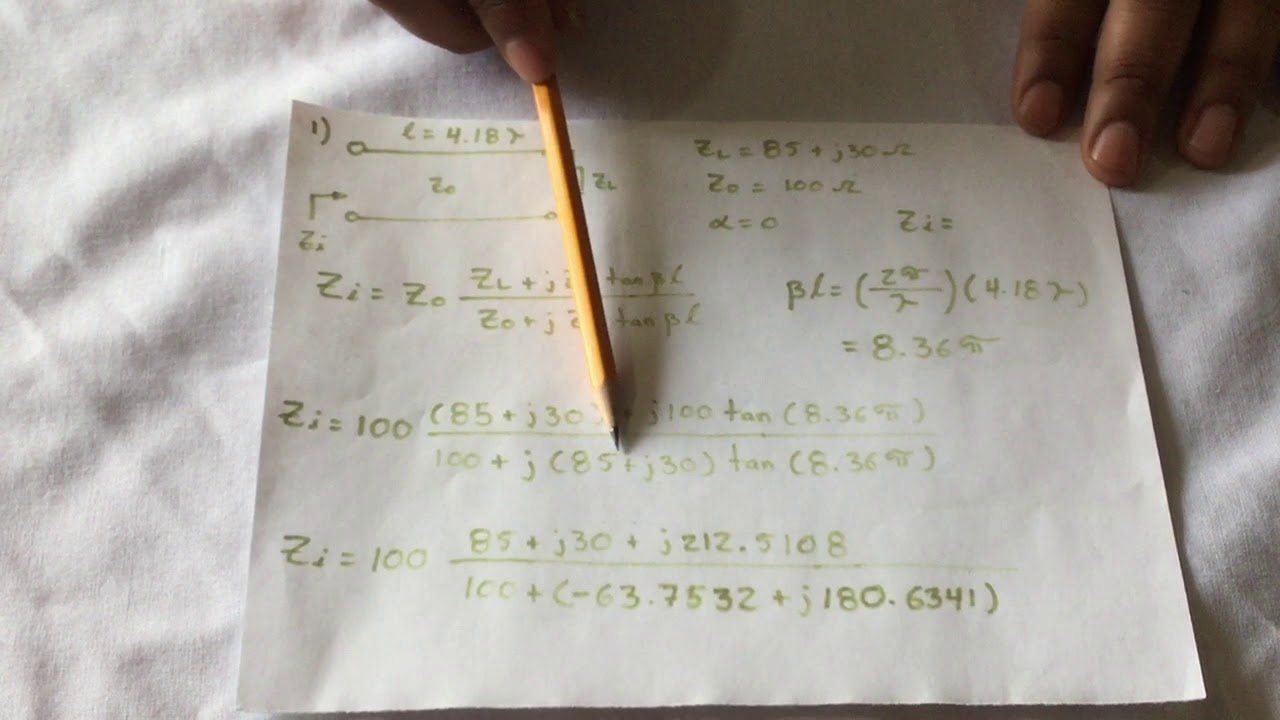 1) l = 4.18λ
Z_L = 85 + j30 Ω
Z_0 Z_L
Z_0 = 100 Ω
α = 0 Z_i =
Z_i
Z_i = Z_0 (Z_L + j tan βl) / (Z_0 + j tan βl)
βl = (2π/λ)(4.18λ)
= 8.36π
Z_i = 100 ((85 + j30) + j100 tan(8.36π)) / (100 + j(85 + j30) tan(8.36π))
Z_i = 100 (85 + j30 + j212.5108) / (100 + (-63.7532 + j180.6341))